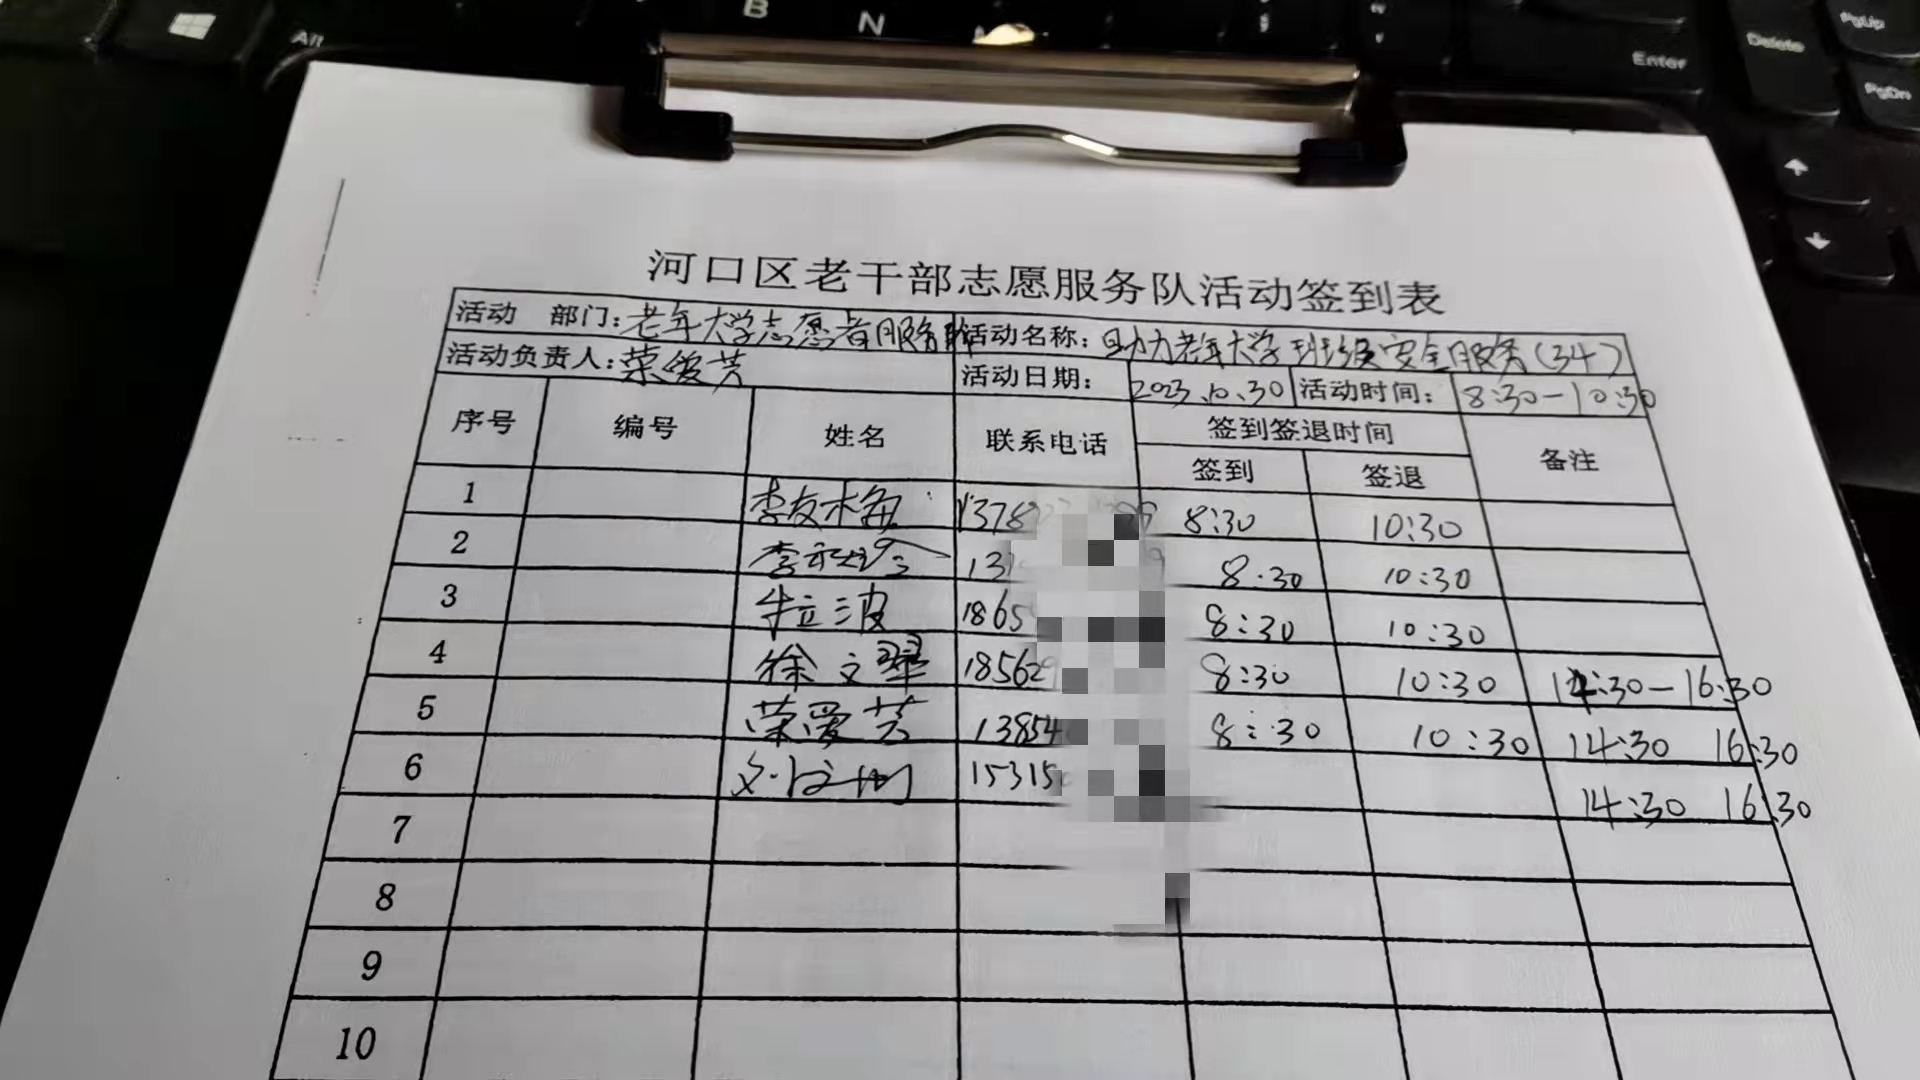 B
N
Alt
Enter
Delete
PgUp
PgDn
河口区老干部志愿服务队活动签到表
活动 部门：老年大学志愿者服务队 活动名称：助力老年大学班级安全服务（34）
活动负责人：荣爱芳 活动日期： 2023.10.30 活动时间： 8:30-10:30
序号 编号 姓名 联系电话 签到签退时间 备注
签到 签退
1 李友梅 1378 8:30 10:30
2 8:30 10:30
3 牛立波 1865 8:30 10:30
4 徐文翠 18562 8:30 10:30 14:30-16:30
5 荣爱芳 13854 8:30 10:30 14:30 16:30
6 15315 14:30 16:30
7
8
9
10